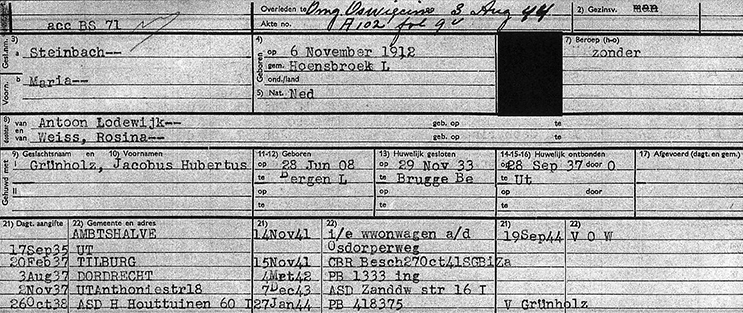 acc BS 71
Overleden te Omg. Oswiecim 3 Aug 44
Akte no. A 102 fol 9v
2) Gezinsv. man
Gesl.nm. 3) a Steinbach--
Voorn. b Maria--
Geboren 4) op 6 November 1912
gem. Hoensbroek L
ond./land
5) Nat. Ned
7) Beroep (h-o) zonder
8) van Antoon Lodewijk-- geb. op te
en van Weiss, Rosina-- geb. op te
Gehuwd met 9) Geslachtsnaam en 10) Voornamen 11-12) Geboren 13) Huwelijk gesloten 14-15-16) Huwelijk ontbonden 17) Afgevoerd (dagt. en gem.)
I Grünholz, Jacobus Hubertus op 28 Jun 08 op 29 Nov 33 op 28 Sep 37 door O
te Bergen L te Brugge Be te Ut
II op op op door
te te te
21) Dagt. aangifte 22) Gemeente en adres 21) 22) 21) 22)
AMBTSHALVE 14Nov41 i/e wwonwagen a/d 19Sep44 V O W
17Sep35 UT Osdorperweg
20Feb37 TILBURG 15Nov41 CBR Besch27Oct41SGBiZa
3Aug37 DORDRECHT 4Mrt42 PB 1333 ing
2Nov37 UTAnthoniestr18 7Dec43 ASD Zanddw str 16 I
26Oct38 ASD H Houttuinen 60 I 27Jan44 PB 418375 V Grünholz